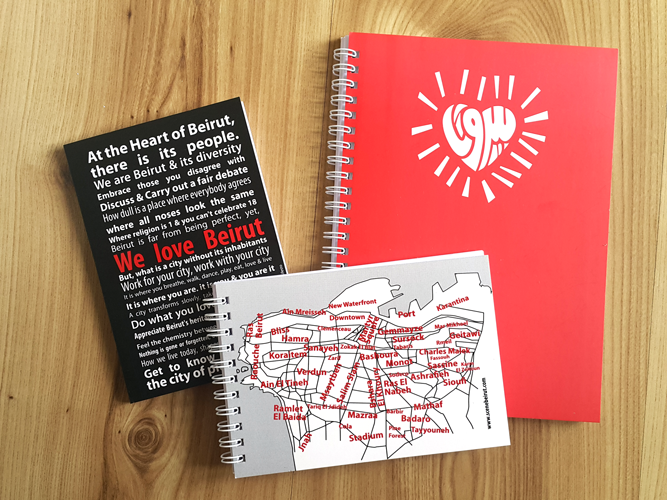 At the Heart of Beirut,
there is its people.
We are Beirut & its diversity
Embrace those you disagree with
Discuss & Carry out a fair debate
How dull is a place where everybody agrees
where all noses look the same
Where religion is 1 & you can't celebrate 18
Beirut is far from being perfect, yet,
We love Beirut
But, what is a city without its inhabitants
Work for your city, work with your city
It is where you breathe, walk, dance, play, eat, love & live
It is where you are. it is you & you are it
A city transforms slowly,
Do what you lov
Appreciate Beirut's heri
Feel the chemistry betw
Nothing is gone or forgotte
How we live today, th
Get to know
the city of p
بيروت
New Waterfront
Ain Mreisseh
Downtown
Port
Karantina
Ras Beirut
Manara
Bliss
Clemenceau
Martyrs' Square
Gemmayze
Mar Mikhael
Hamra
Sursock
Geitawi
Sanayeh
Zokak el Blat
Tabaris
Rmeil
Koraitem
Zarif
Bashoura
Charles Malek
Fassouh
Monot
Sassine
Verdun
Mseytbeh
Salim Slam
Sodeco
Ashrafieh
Ain El Tineh
Ras El Nabeh
Sioufi
Ramlet El Baida
Tariq El Jdideh
Barbir
Mathaf
Mazraa
Badaro
Cola
Pine Forest
Tayyouneh
Jnah
Stadium
www.scenebeirut.com